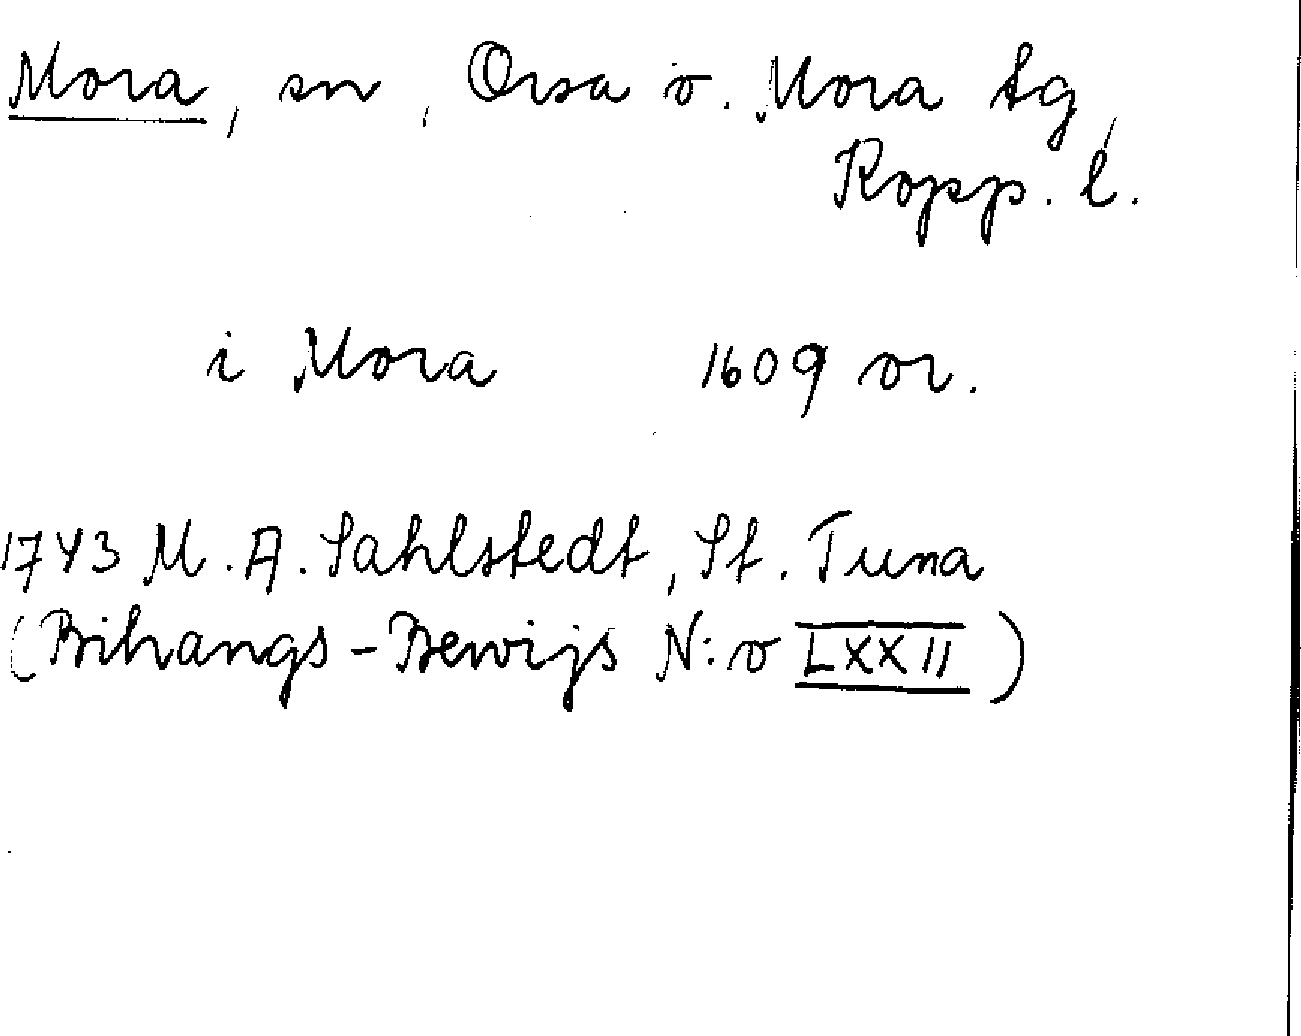 Mora, sn, Orsa o. Mora tg,
Kopp. l.
i Mora 1609 or.
1743 M. A. Sahlstedt, St. Tuna
(Bihangs-Bewijs N:o LXXII)